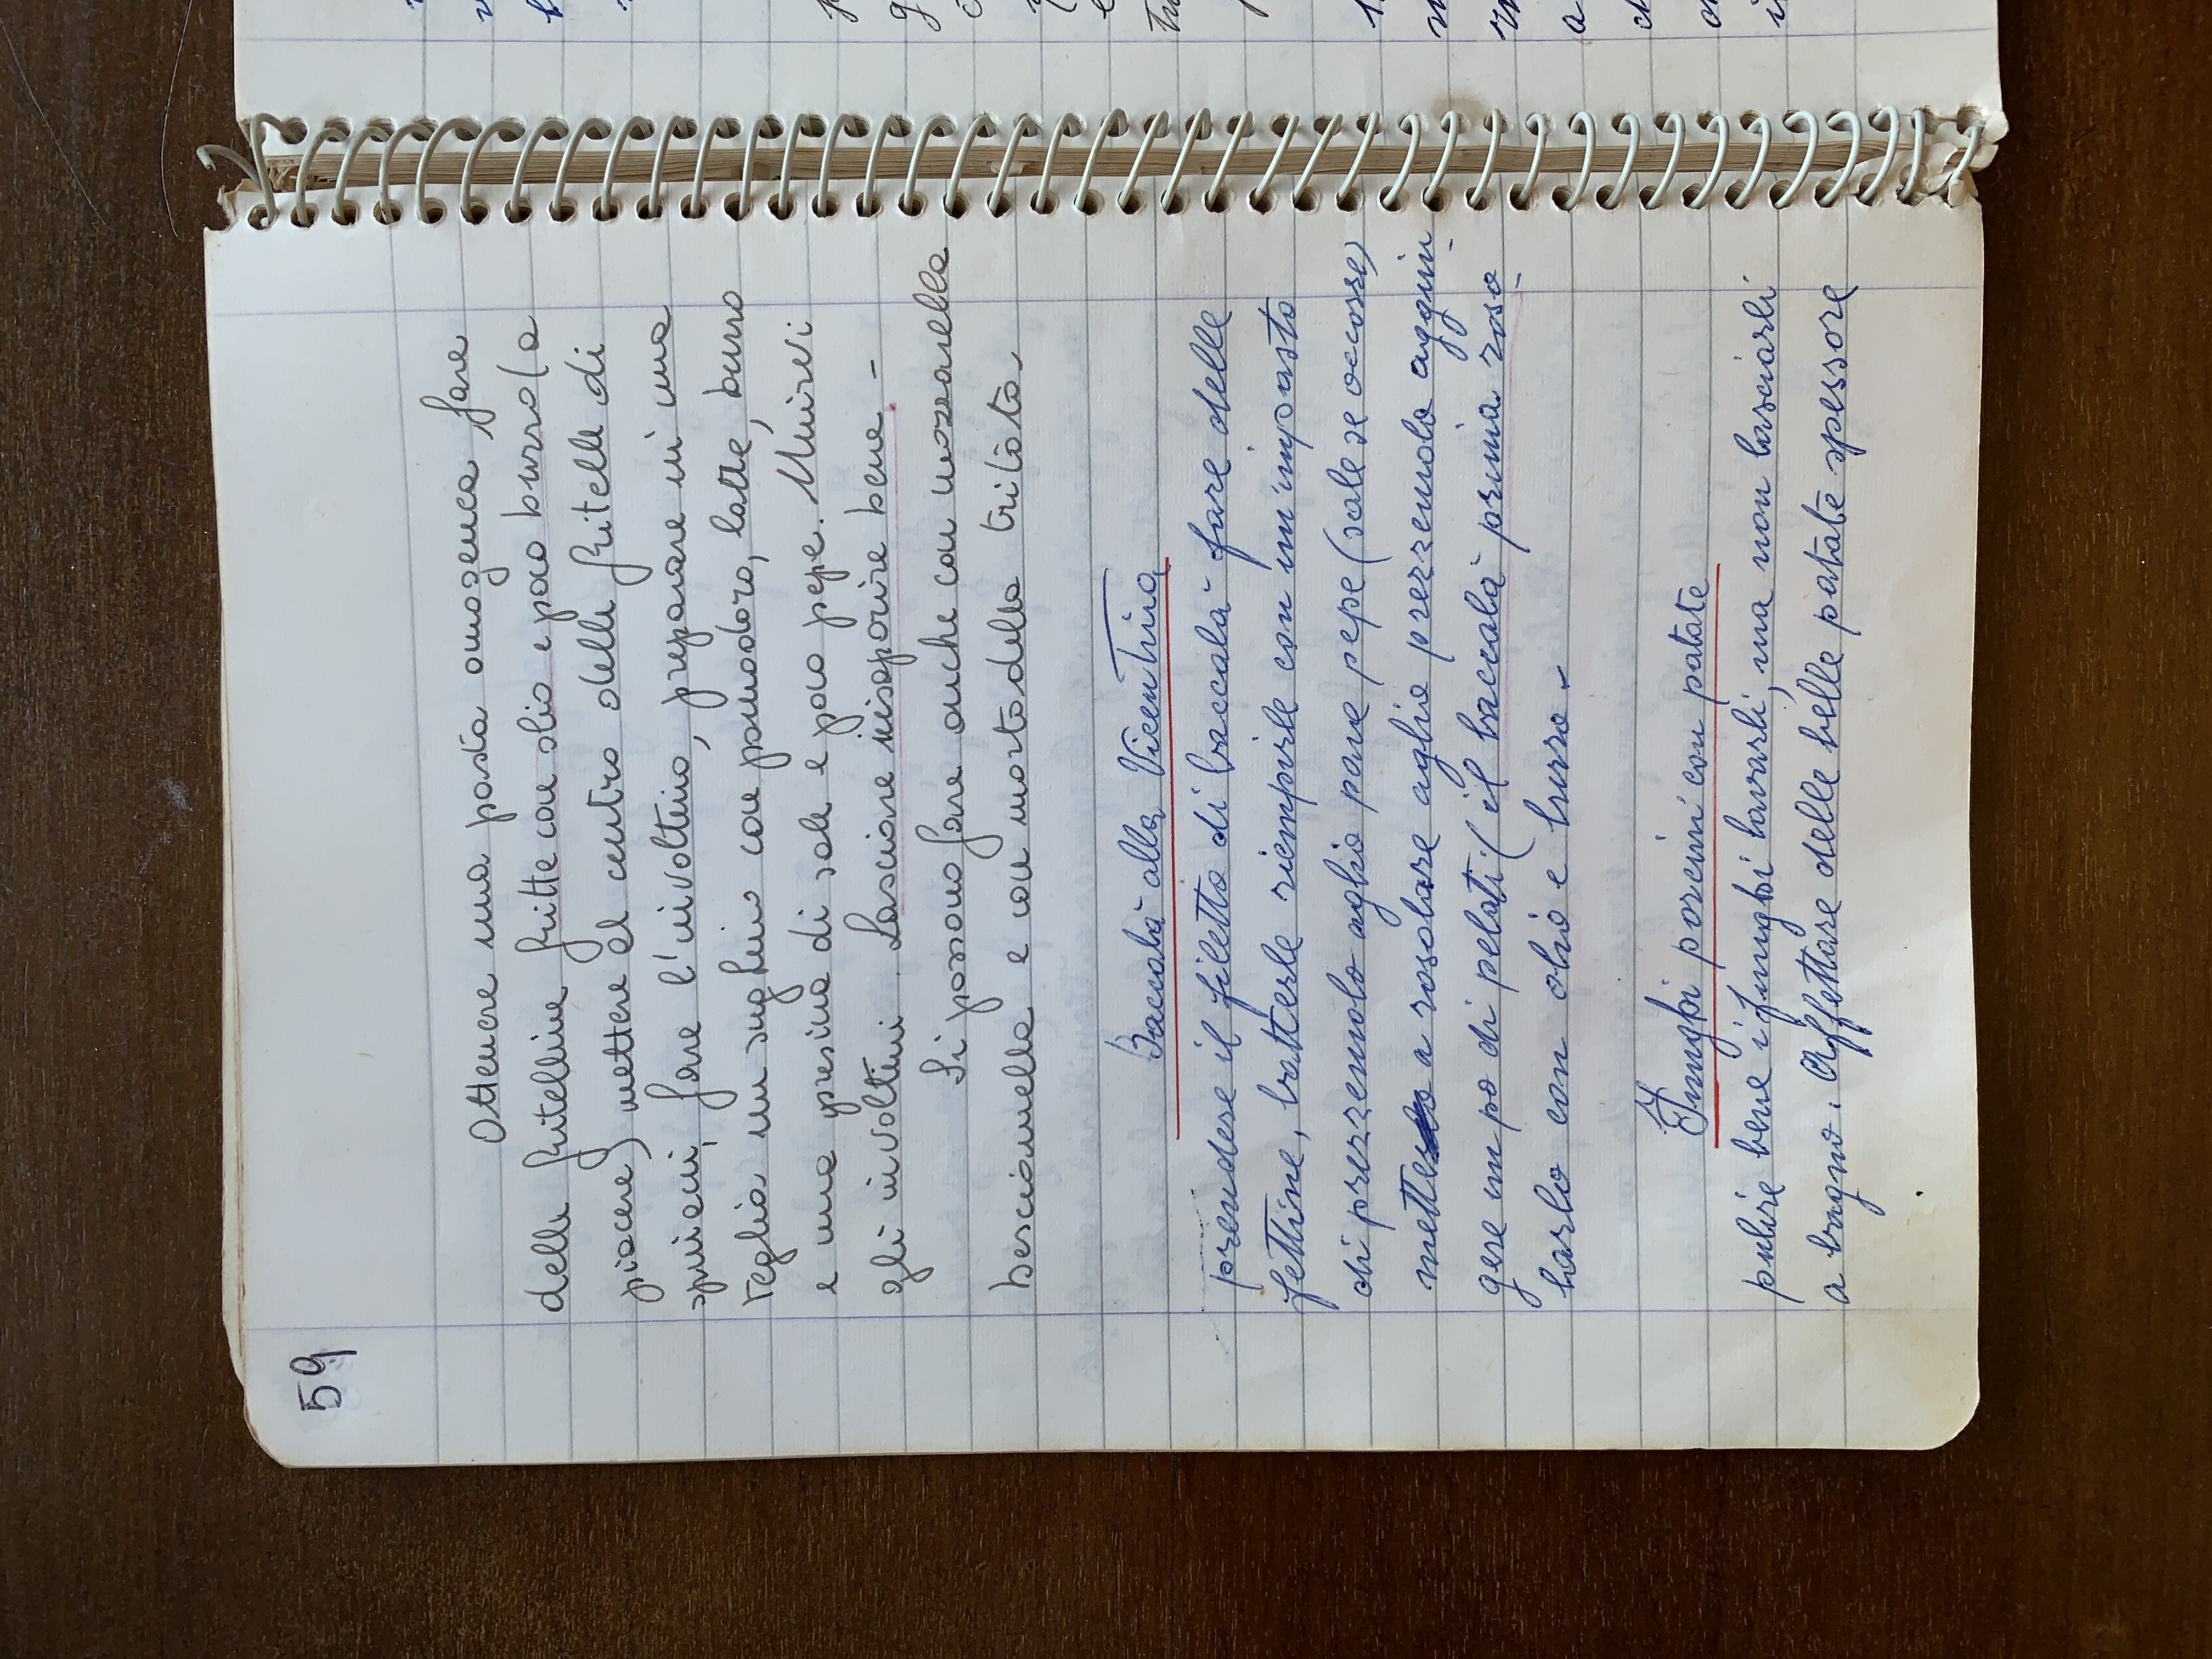 59
Ottenere una pasta omogenea, fare
delle fritelline fritte con olio e poco burro (a
piacere) mettere al centro delle fritelle di
spinaci, fare l'involtino, preparare in una
teglia un sughino con pomodoro, latte, burro
e una presina di sale e poco pepe. Unirvi
gli involtini. Lasciare insaporire bene -
Si possono fare anche con mozzarella
besciamella e con mortadella tritata.
Baccalà alla Vicentina
prendere il filetto di baccalà fare delle
fettine, batterle riempirle con un'impasto
di prezzemolo aglio pane pepe (sale se occorre)
mettere a rosolare aglio prezzemolo aggiun
gere un po di pelati (il baccalà prima roso
larlo con olio e burro -
Funghi porcini con patate
pulire bene i funghi lavarli, ma non lasciarli
a bagno. Affettare delle belle patate spessore